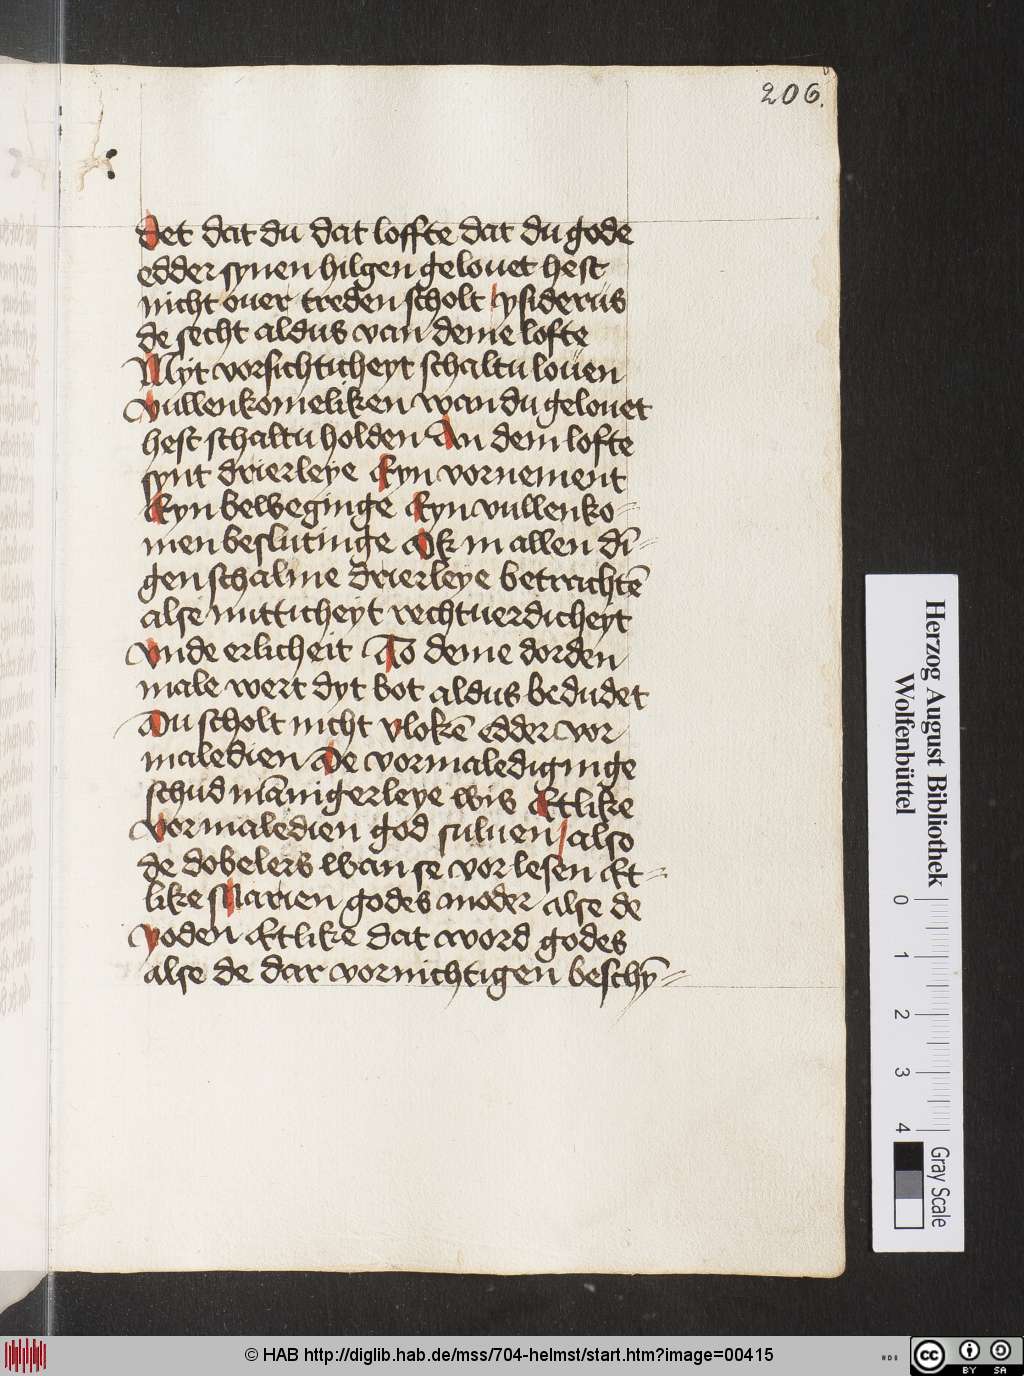 206.
det dat du dat loffte dat du gode
edder synen hilgen gelouet hest
nicht ouer treden scholt ysiderus
de secht aldus van deme lofte
Myt vorsichticheyt schaltu louen
vullenkomeliken wan du gelouet
hest schaltu holden An dem lofte
synt drierleye Eyn vornement
Eyn beweginge Eyn vullenko-
men beslutinge Ok in allen dī-
gen schalme drierleye betrachtē
alse nutticheyt rechtuerdicheyt
vnde erlicheit To deme dorden
male wert dyt bot aldus bedudet
Du scholt nicht vlokē edder vor
maledien De vormalediginge
schud mānigerleye wis Etlike
vormaledien god suluen also
de dobelers wan se vorlesen Et-
like Marien godes moder alse de
yoden Etlike dat word godes
alse de dar vornichtigen beschȳ-
Herzog August Bibliothek
Wolfenbüttel
0 1 2 3 4
Gray Scale
© HAB http://diglib.hab.de/mss/704-helmst/start.htm?image=00415
cc BY SA